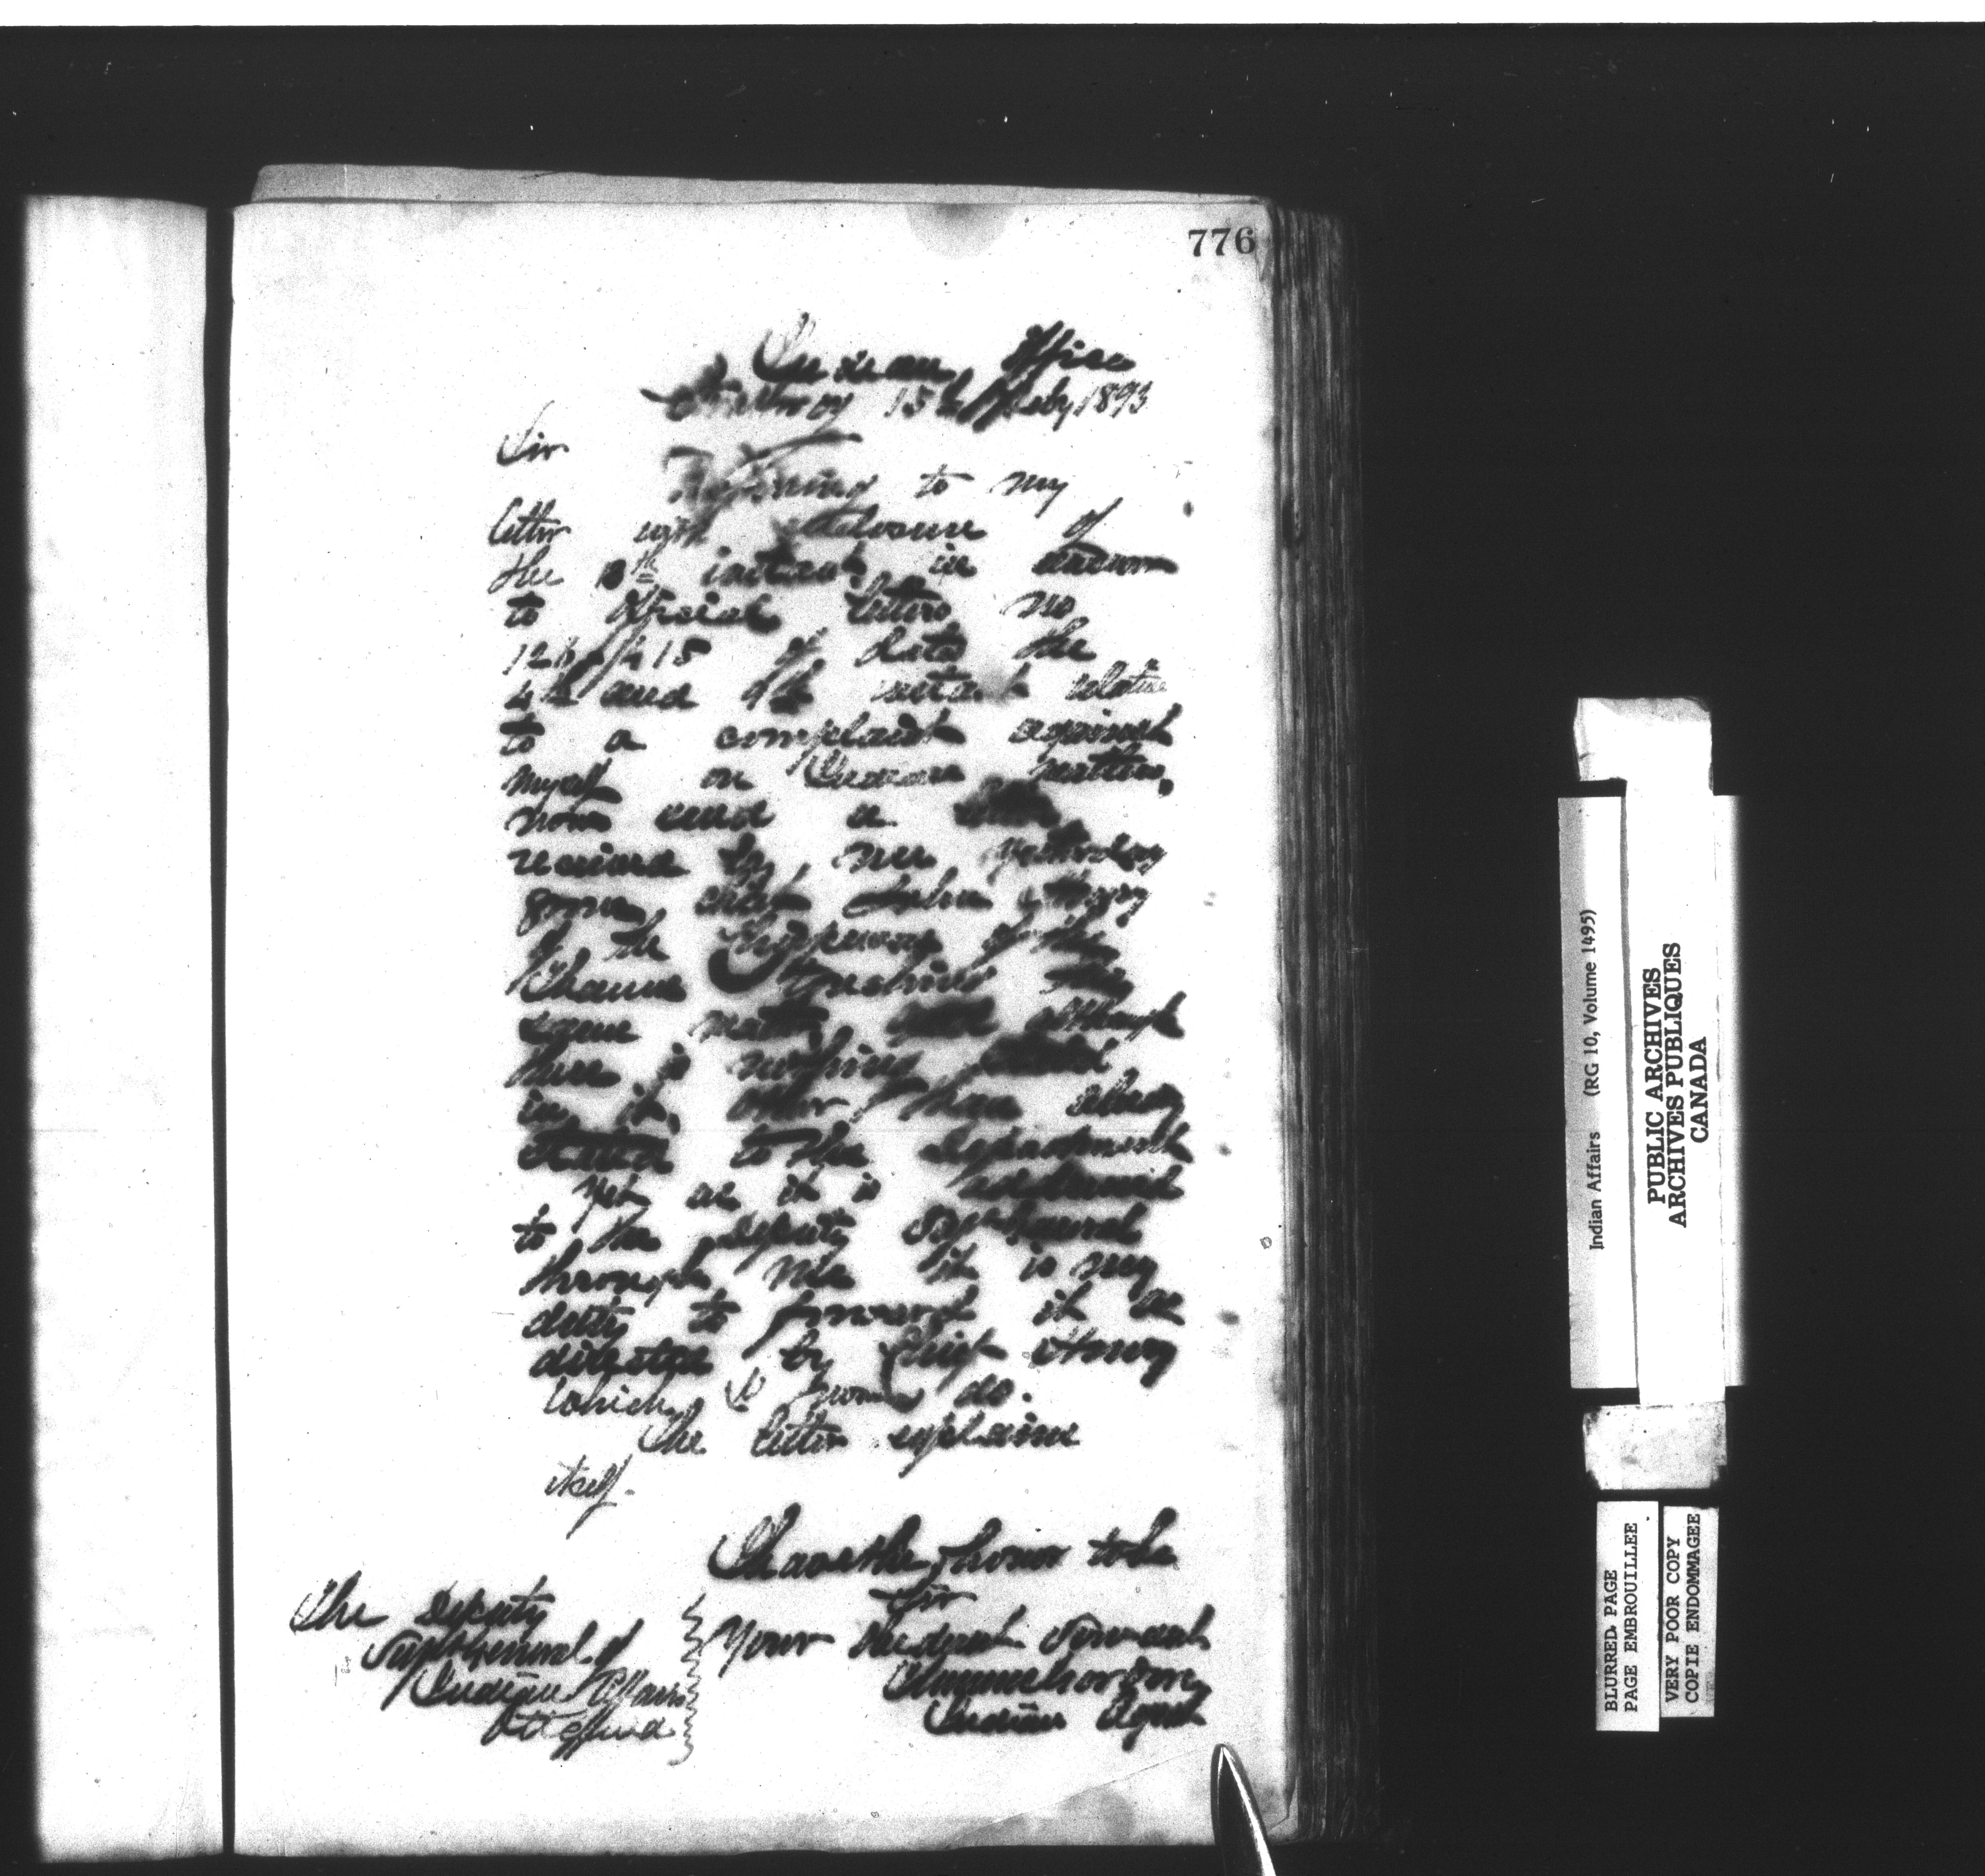 776
Indian Office
Strathroy 15th Feby 1893
Sir
Referring to my
letter with enclosure of
the instant in answer
to official letters no
of date the
4th and instant relative
to a complaint against
myself on Indian matters,
now send a letter
received by me yesterday
from chief John Henry
of the Chippewas of the
Thames touching this
same matter although
there is nothing stated
in it other than already
stated to the Department
Yet as it is addressed
to the Deputy Supt General
through me it is my
duty to forward it as
directed by Chief Henry
which I now do.
The letter explains
itself.
I have the honor to be
Sir
Your obedient servant
Indian Agent
The Deputy
Supt General of
Indian Affairs
Ottawa
Indian Affairs (RG 10, Volume 1495)
PUBLIC ARCHIVES
ARCHIVES PUBLIQUES
CANADA
BLURRED PAGE
PAGE EMBROUILLEE
VERY POOR COPY
COPIE ENDOMMAGEE